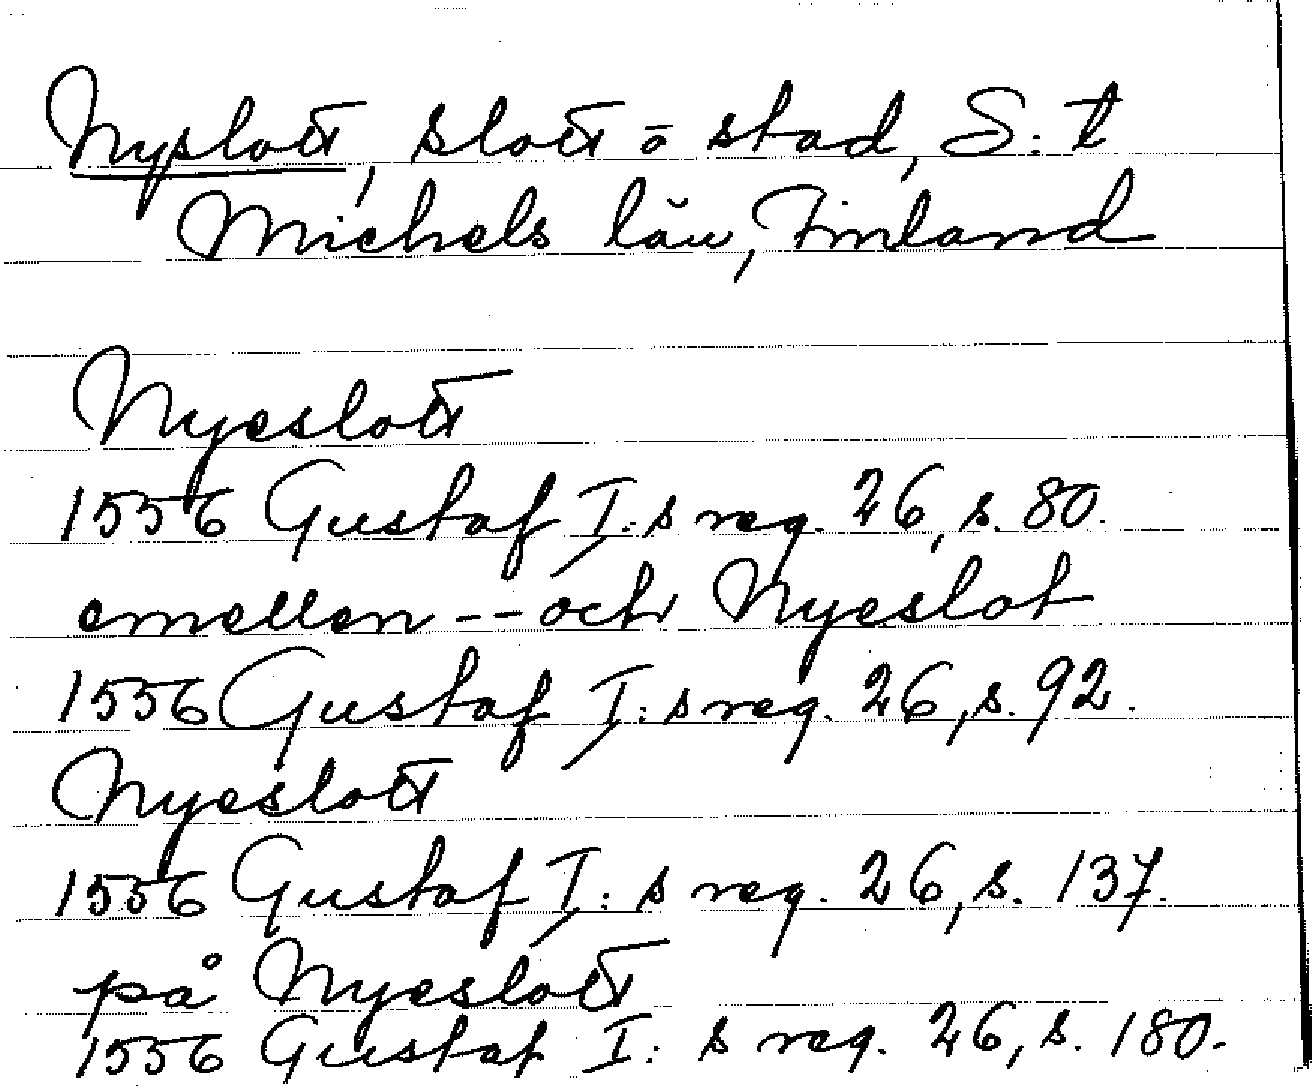 Nyslott, slott o stad, S:t
Michels län, Finland
Nyeslott
1556 Gustaf I:s reg. 26, s. 80.
emellen -- och Nyeslot
1556 Gustaf I:s reg. 26, s. 92.
Nyeslott
1556 Gustaf I:s reg. 26, s. 137.
på Nyeslott
1556 Gustaf I:s reg. 26, s. 180.